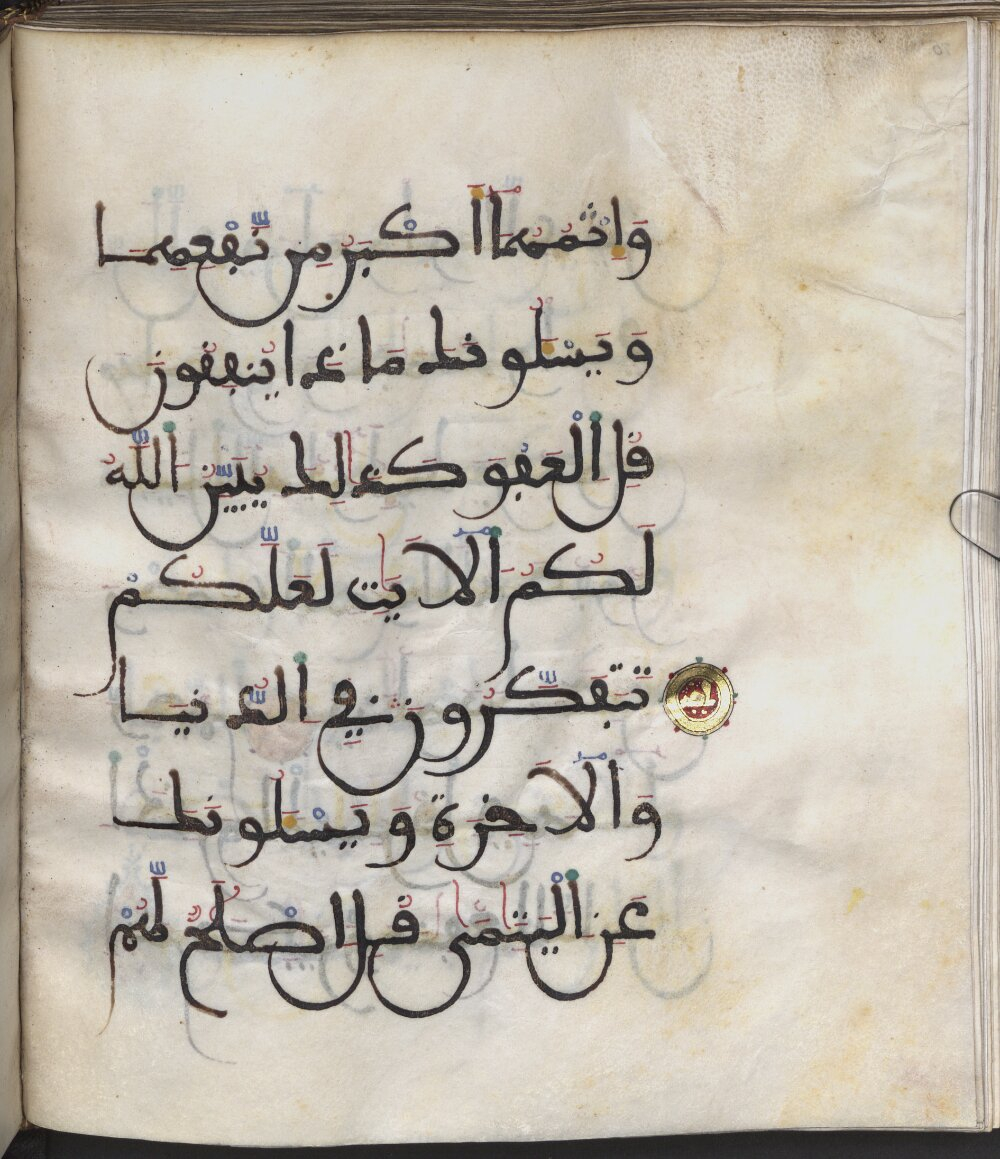 وَإِثْمُهُمَآ أَكْبَرُ مِن نَّفْعِهِمَا
وَيَسْـَٔلُونَكَ مَاذَا يُنفِقُونَ
قُلِ ٱلْعَفْوَ كَذَٰلِكَ يُبَيِّنُ ٱللَّهُ
لَكُمُ ٱلْأَيَٰتِ لَعَلَّكُمْ
تَتَفَكَّرُونَ فِي ٱلدُّنْيَا
وَٱلْأَخِرَةِ وَيَسْـَٔلُونَكَ
عَنِ ٱلْيَتَٰمَىٰ قُلْ إِصْلَٰحٌ لَّهُمْ